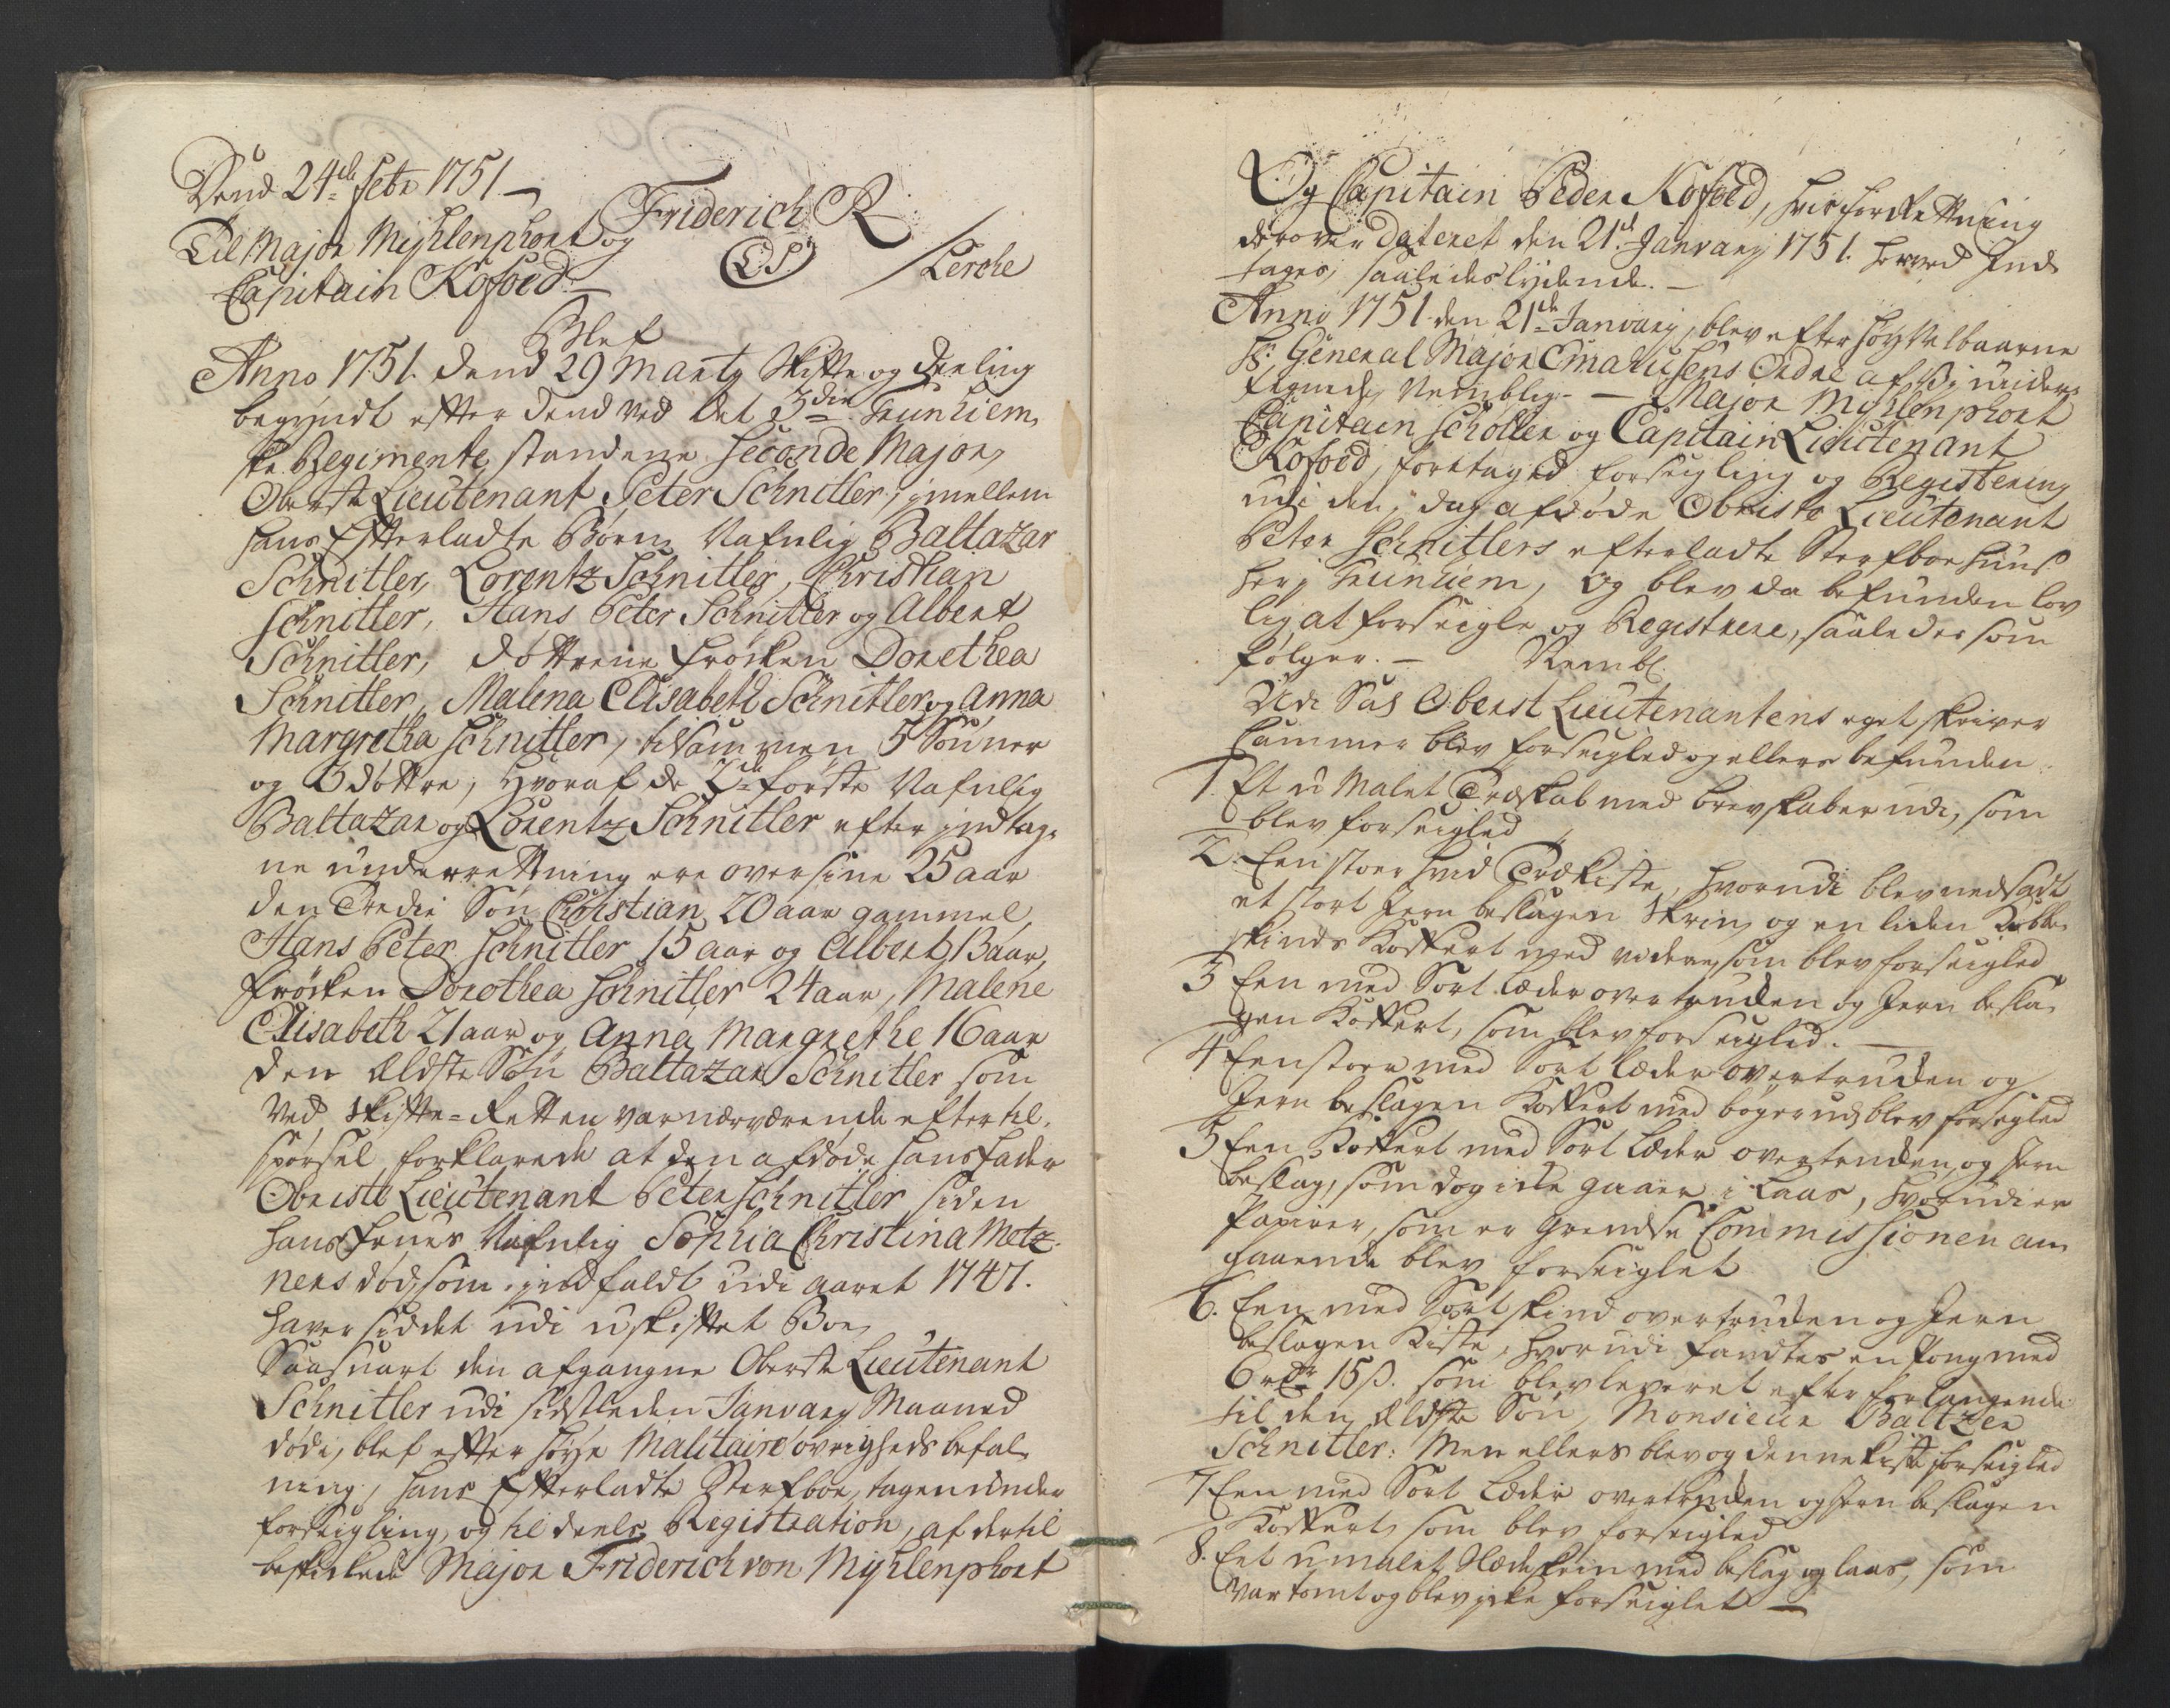 Dend 24de Febr 1751 –
Friderich R
Til Major Myhlenphort og
(L.S.) / Lerche
Capitain Kofoed –
Blef
Anno 1751. dend 29 Marty Skifte og deeling
begyndt efter dend ved det 3die Trunhiem-
ske Regimente standene Seconde Major,
Oberste Lieutenant Peter Schnitler, imellem
hans Efterladte Børn, Nafnlig Baltazar
Schnitler, Lorentz Schnitler, Christian
Schnitler, Hans Peter Schnitler og Albert
Schnitler, døttrene frøiken Dorethea
Schnitler, Malena Elisabeth Schnitler og Anna
Margretha Schnitler, tilsammen 5 Sønner
og 3 døttre, Hvoraf de 2de første Nafnlig
Baltazar og Lorentz Schnitler efter indtag-
ne underrettning ere over sine 25 aar
den Tredie Søn Christian 20 aar gammel,
Hans Peter Schnitler 15 aar og Albert 13 aar,
frøiken Dorothea Schnitler 24 aar, Malene
Elisabeth 21 aar og Anna Margrethe 16 aar
den Eldste Søn Baltazar Schnitler som
ved Skifte-Retten var nærværende efter til-
spørsel forklarede at den afdøde hans fader
Obriste Lieutenant Peter Schnitler siden
hans frues Nafnlig Sophia Christina Metz-
ners død, som indfaldt udi aaret 1747.
haver siddet udi uskiftet Boe,
Saasnart den afgangne Oberste Lieutenant
Schnitler udi sidstleden January Maaned
døde, blef efter høye Malitaire øvrigheds befal-
ning, hans Efterladte Sterfboe, tagen under
forseigling, og til deels Registration, af dertil
beskikkede Major Friderich von Myhlenphort
Og Capitain Peder Kofoed, hvis forrettning
derover dateret den 21de January 1751. herved Ind-
tages, saaledes lydende. –
Anno 1751 den 21de January, blev efter høy Velbaarne
Hr General Major Emahusens Ordre af Vi under-
tegnede, Nemblig – Major Myhlenphort
Capitain Schøller og Capitain Lieutenant
Kofoed, foretaged forseigling og Registering
udi den i dag afdøde Obriste Lieutenant
Peter Schnitlers efterladte Sterfboe huus
her i Trunhiem, Og blev da befunden lov
lig at forseigle og Registrere, saaledes som
følger. – Nembl.
Udi Sal Oberst Lieutenantens eget skriver
Cammer blev forseigled og ellers befunden
1. Et u malet Træskab med brevskaber udi, som
blev forseigled
2. Een stoer hvid Trækiste, hvorudi blev nedsadt
et stort Jern beslagen Skrin og en liden Kobbe
skinds Koffert med videre, som blev forseigled
3 Een med Sort Læder overtruden og Jern besla-
gen Koffert, som blev forseigled. –
4 Een stoer med Sort Læder overtruden og
Jern beslagen Koffert med bøger udj blev forseigled
5 Een Koffert med Sort Læder overtruden og Jern
beslag, som dog icke gaaer i Laas, hvorudi er
Papirer, som er Grendse Commissionen an
gaaende blev forseiglet
6. Een med Sort skind overtruden og Jern
beslagen Kiste, hvorudi fandtes en Pong med
6 rdr 15 s. som blev leveret efter forlangende
til den Eldste Søn, Monsieur Baltzer
Schnitler: Men ellers blev og denne Kiste forseigled
7 Een med Sort Læder overtruden og Jern beslagen
Koffert som blev forseigled
8. Eet umalet Slædeskrin med beslag og laas, som
var tomt og blev icke forseiglet –